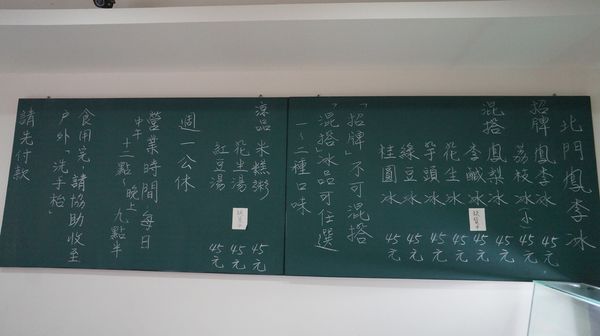 北門鳳李冰
招牌 鳳李冰 45元
荔枝冰(小) 45元
混搭 鳳梨冰 45元
李鹹冰 45元
花生冰 45元
芋頭冰 45元
綠豆冰 45元
桂圓冰 45元
「招牌」不可混搭
「混搭冰品可任選
一~二種口味
涼品 米糕粥 45元
花生湯 45元
紅豆湯 45元
週一公休
營業時間 每日
中午 十二點~晚上九點半
食用完 請協助收至
戶外「洗手枱」
請先付款